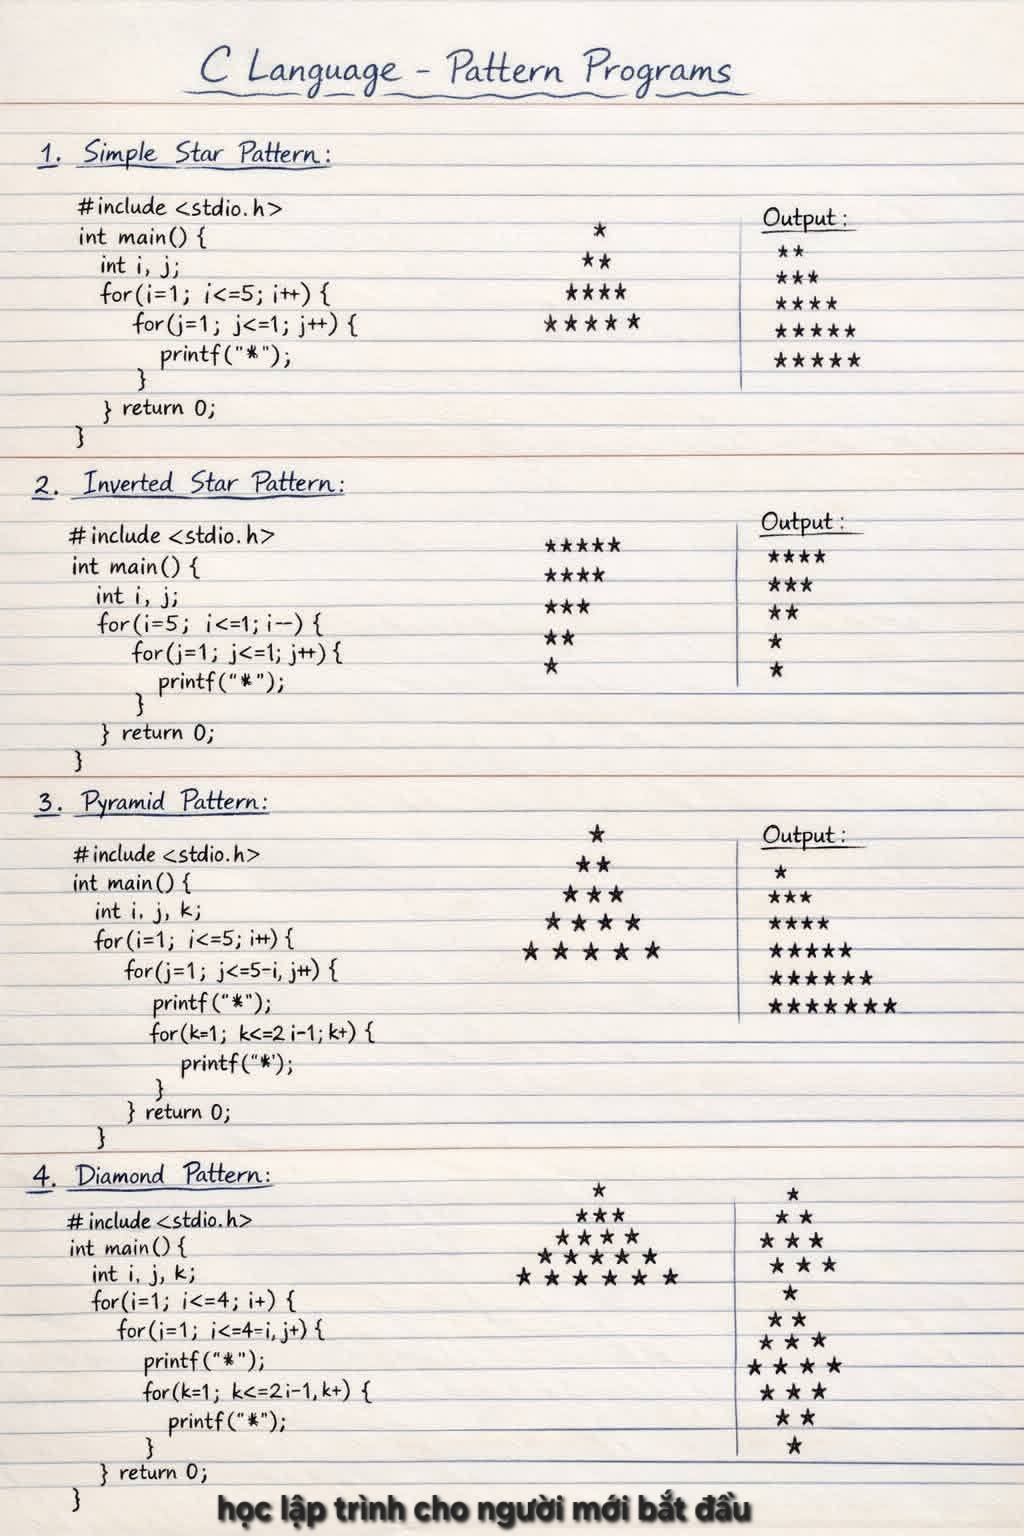 C Language - Pattern Programs
1. Simple Star Pattern:
#include <stdio.h>
int main() {
int i, j;
for(i=1; i<=5; i++) {
for(j=1; j<=1; j++) {
printf("*");
}
} return 0;
}
*
**
****
*****
Output:
**
***
****
*****
*****
2. Inverted Star Pattern:
#include <stdio.h>
int main() {
int i, j;
for(i=5; i<=1; i--) {
for(j=1; j<=1; j++) {
printf("*");
}
} return 0;
}
*****
****
***
**
*
Output:
****
***
**
*
*
3. Pyramid Pattern:
#include <stdio.h>
int main() {
int i, j, k;
for(i=1; i<=5; i++) {
for(j=1; j<=5-i, j++) {
printf("*");
for(k=1; k<=2 i-1; k+) {
printf("*');
}
} return 0;
}
*
* *
* * *
* * * *
* * * * *
Output:
*
***
****
*****
******
*******
4. Diamond Pattern:
#include <stdio.h>
int main() {
int i, j, k;
for(i=1; i<=4; i+) {
for(i=1; i<=4-i, j+) {
printf("*");
for(k=1; k<=2i-1, k+) {
printf("*");
}
} return 0;
}
*
***
* * * *
* * * * *
* * * * * *
*
* *
* * *
* * *
*
* *
* * *
* * * *
* * *
* *
*
học lập trình cho người mới bắt đầu